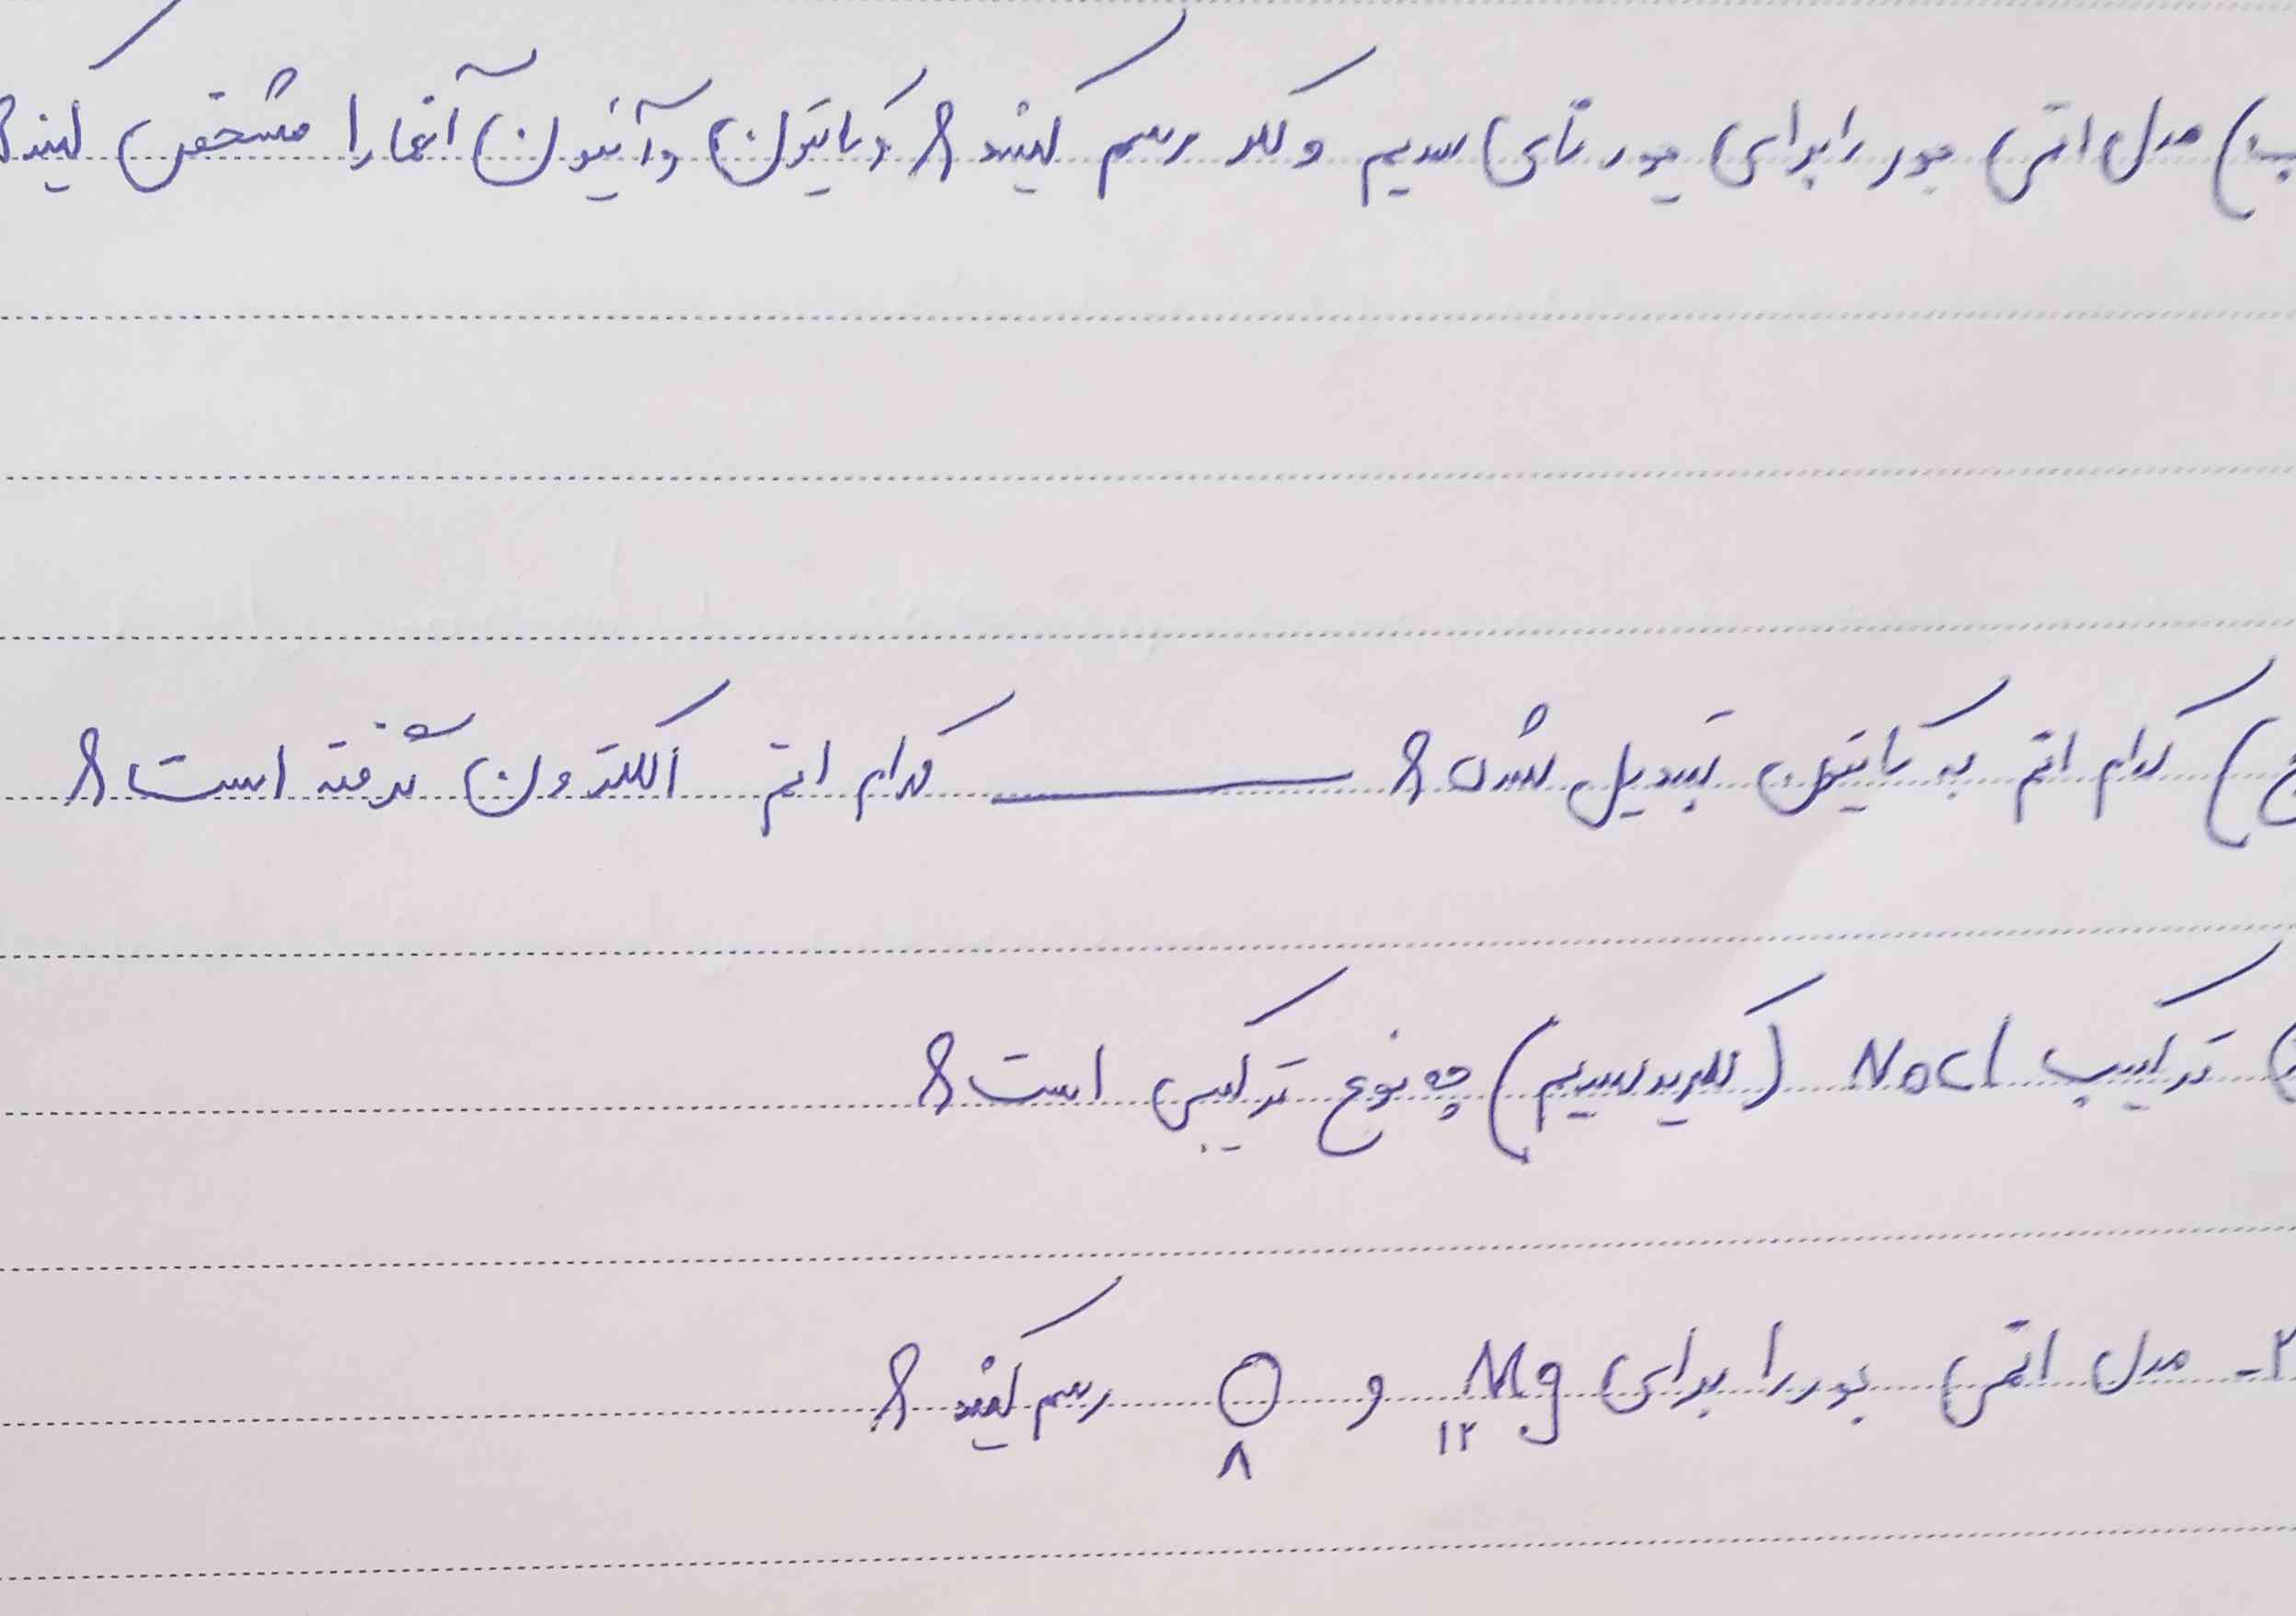 ب) مدل اتمی بور را برای یون های سدیم و کلر رسم کنید؟ و کاتیون و آنیون آنها را مشخص کنید؟
ج) کدام اتم به کاتیون تبدیل شد؟ ــــــ کدام اتم الکترون گرفته است؟
) ترکیب NaCl (کلرید سدیم) چه نوع ترکیبی است؟
۲- مدل اتمی بور را برای Mg ۱۲ و O ۸ رسم کنید؟